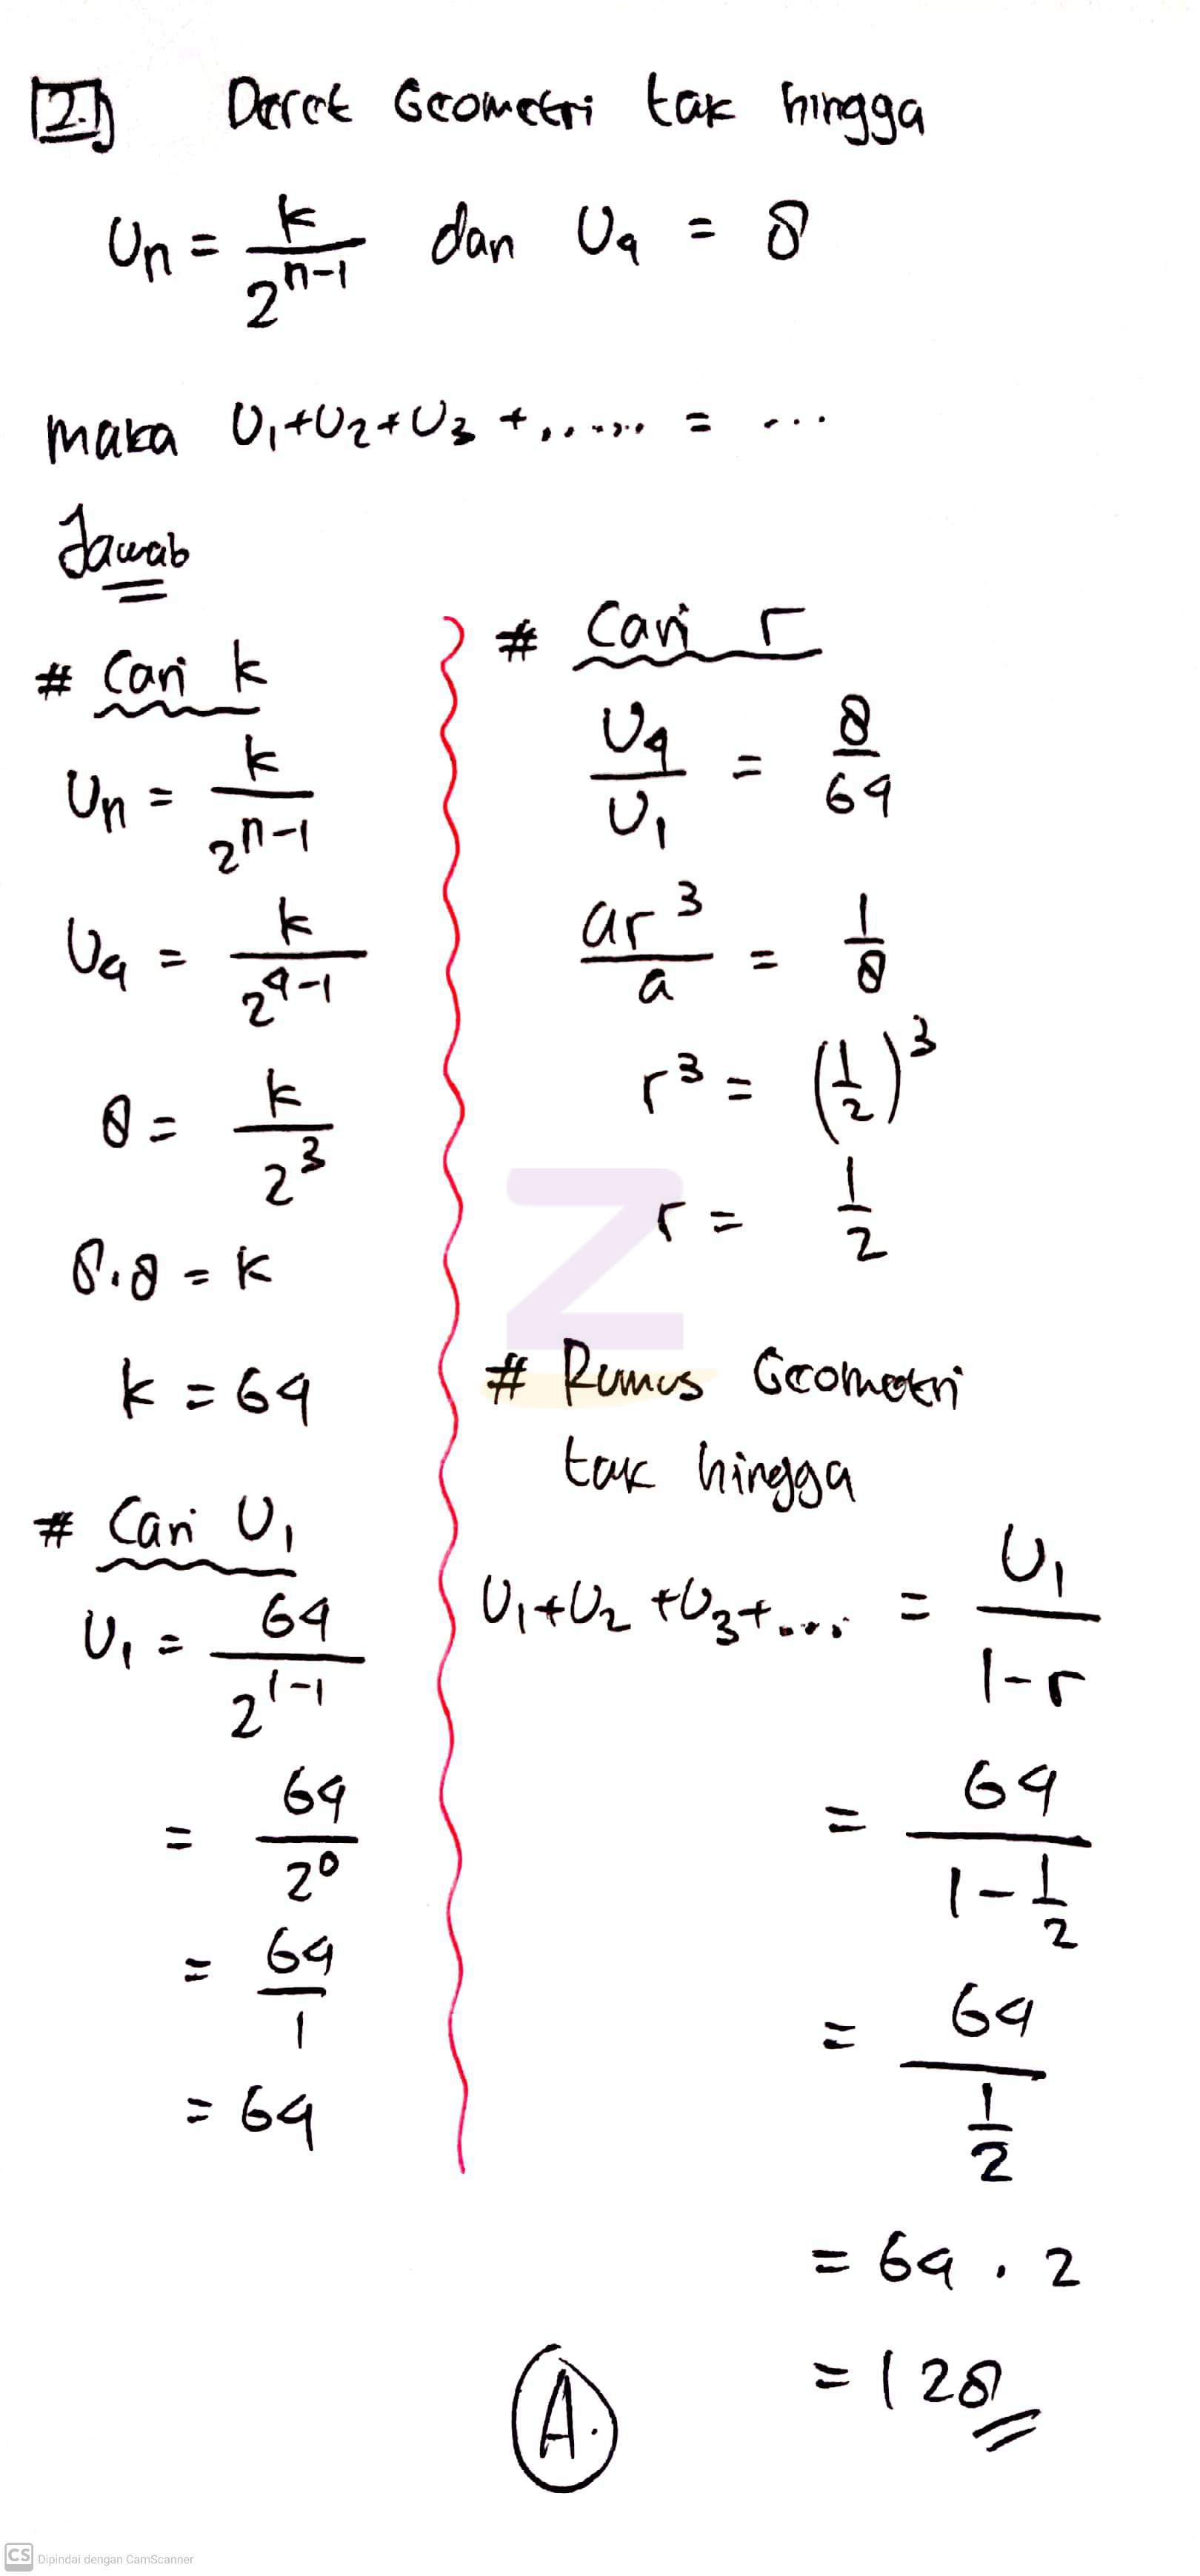 2.) Deret Geometri tak hingga
Un = k / 2^(n-1) dan U4 = 8
maka U1+U2+U3 + ....... = ...
Jawab
# Cari k
Un = k / 2^(n-1)
U4 = k / 2^(4-1)
8 = k / 2^3
8.8 = k
k = 64
# Cari U1
U1 = 64 / 2^(1-1)
= 64 / 2^0
= 64 / 1
= 64
# Cari r
U4 / U1 = 8 / 64
ar^3 / a = 1 / 8
r^3 = (1/2)^3
r = 1/2
# Rumus Geometri
tak hingga
U1+U2+U3+.... = U1 / (1-r)
= 64 / (1 - 1/2)
= 64 / (1/2)
= 64 . 2
= 128
A.
Z
CS Dipindai dengan CamScanner